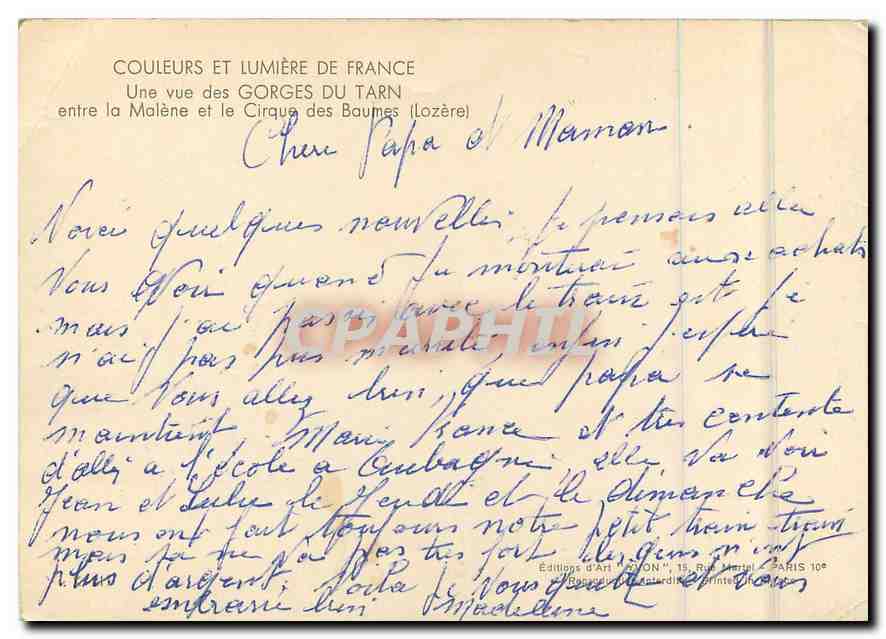 COULEURS ET LUMIÈRE DE FRANCE
Une vue des GORGES DU TARN
entre la Malène et le Cirque des Baumes (Lozère)
Chere Papa et Maman.
Voici quelques nouvelles, je pensais allé
vous Voir quand je montrai aux achats
mais j'ai passé avec le train et je
n'ai pas pus, enfin j'espère
que vous allez bien, que papa se
maintient Marie France et tres contente
d'allé a l'école a Aubagne, elle va voir
Jean et Lulu le Jeudi et le dimanche
nous ont fait toujours notre petit train train
mais sa ne va pas tres fort les gens n'ont
plus d'argent, voila je vous quitte et vous
embrasse bien Madeleine
CPAPHIL
Éditions d'Art "YVON", 15, Rue Martel - PARIS 10e
Reproduction Interdite Printed in France